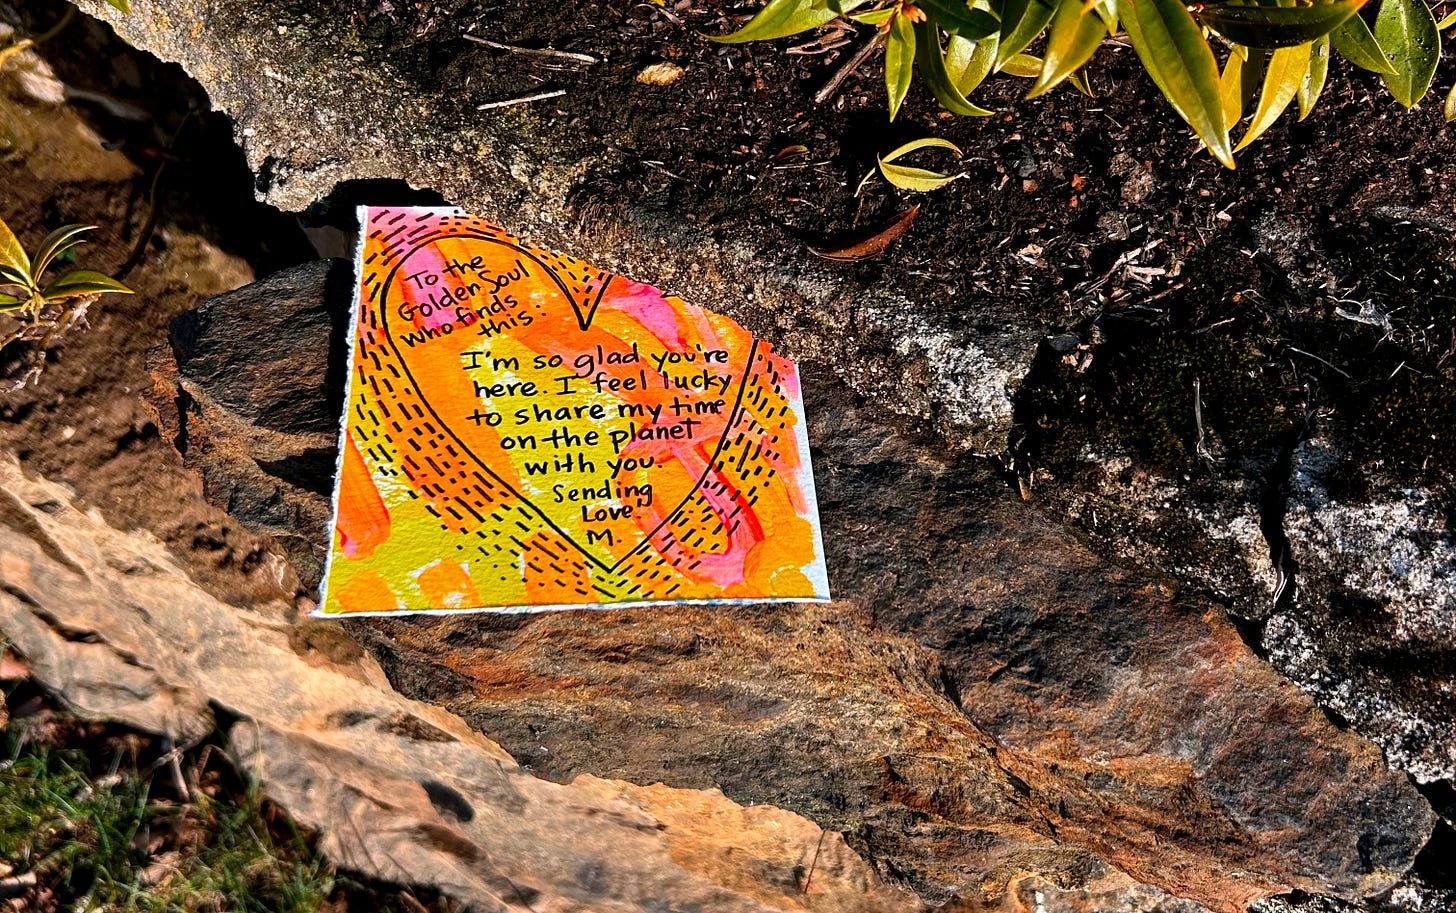 To the
Golden Soul
who finds
this:
I'm so glad you're
here. I feel lucky
to share my time
on the planet
with you.
Sending
Love
M.